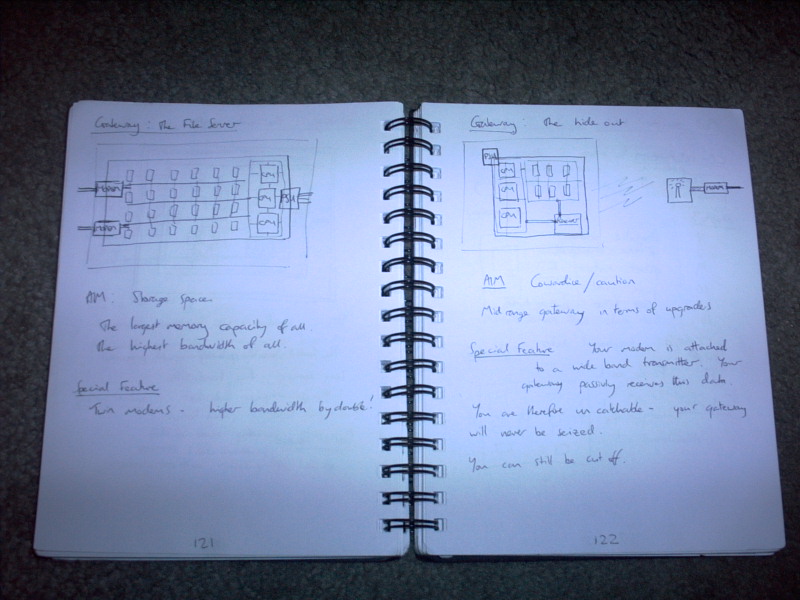 Gateway: The File Server
CPU
CPU
CPU
PSU
MODEM
MODEM
AIM: Storage space
The largest memory capacity of all.
The highest bandwidth of all.
Special Feature
Twin modems - higher bandwidth by double!
121
Gateway: The hide out
PSU
CPU
CPU
CPU
MODEM
AIM Cowardice/caution
Mid range gateway in terms of upgrades
Special Feature Your modem is attached
to a wide band transmitter. Your
gateway passivly receives this data.
You are therefore un catchable - your gateway
will never be seized.
You can still be cut off.
122